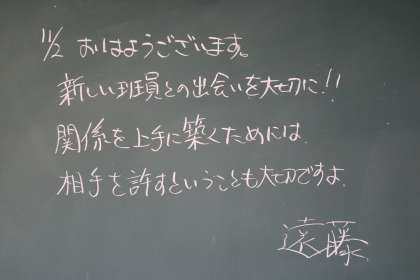 11/2 おはようございます。
新しい班員との出会いを大切に!!
関係を上手に築くためには
相手を許すということも大切ですよ.
遠藤